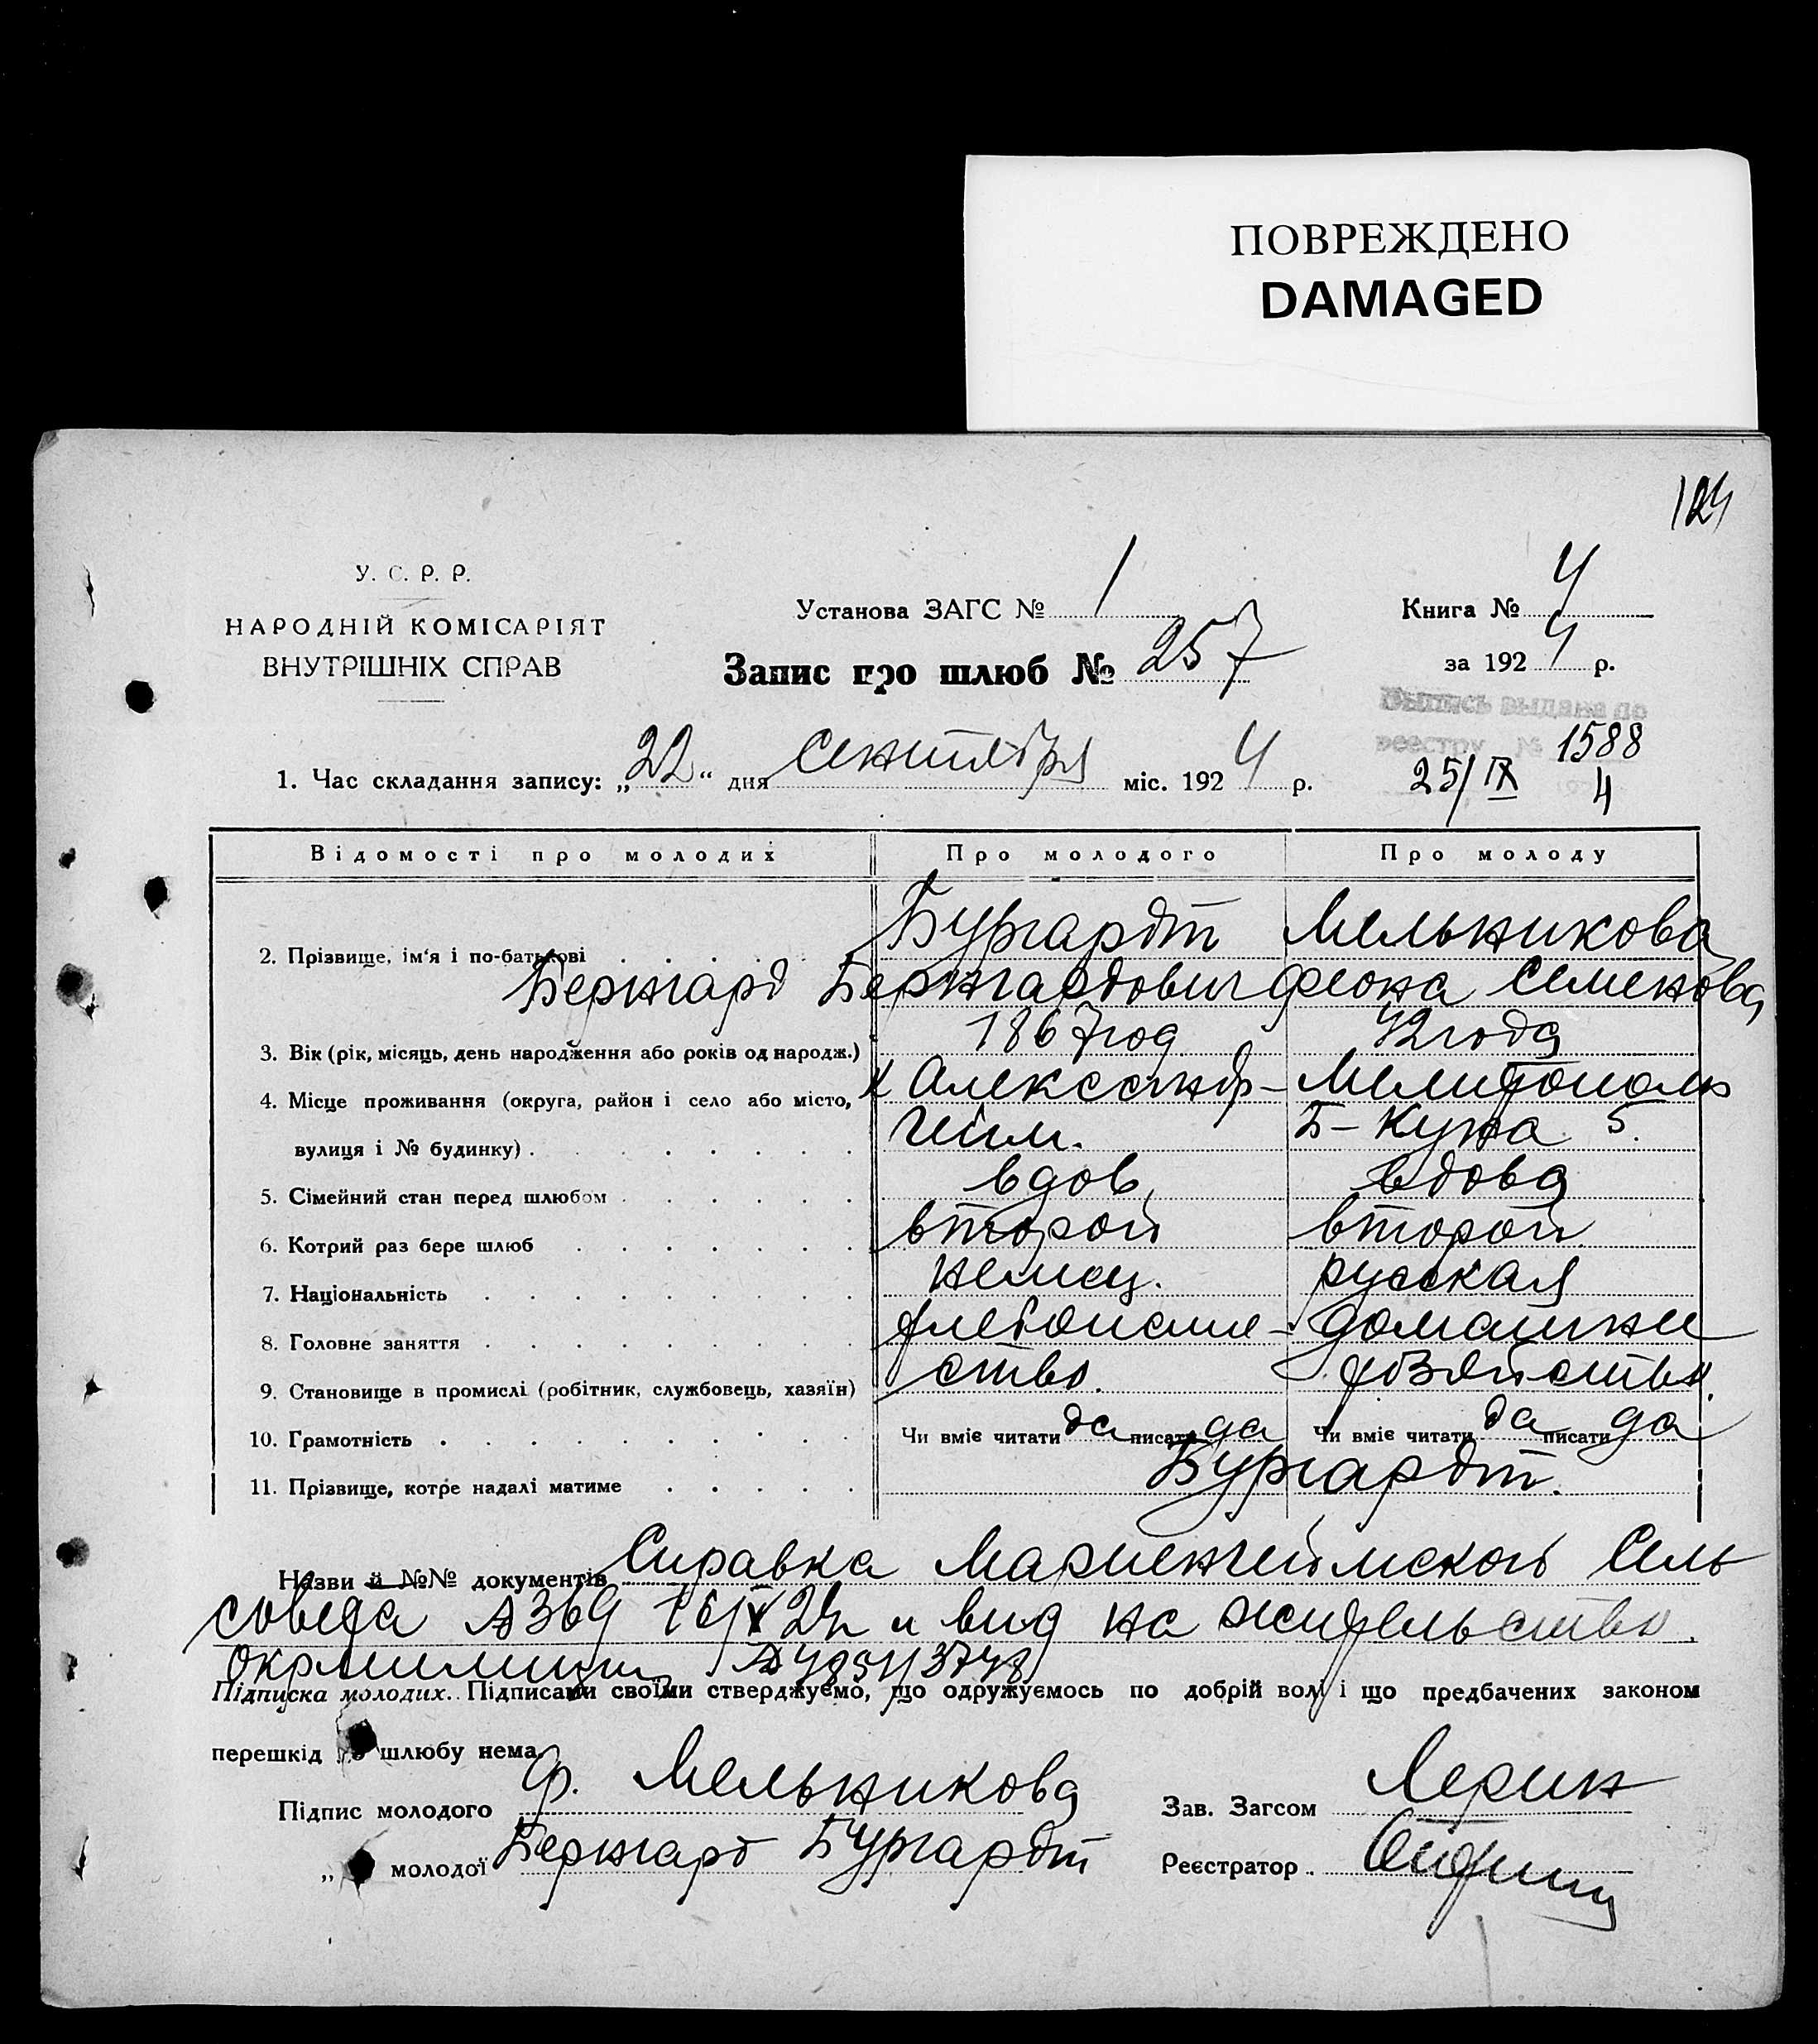 ПОВРЕЖДЕНО
DAMAGED
124
У. С. Р. Р.
НАРОДНІЙ КОМІСАРІЯТ
ВНУТРІШНІХ СПРАВ
Установа ЗАГС № 1
Книга № 4
Запис про шлюб № 257
за 1924 р.
Выпись выдана по
реестру № 1588
25/IX 4
1. Час складання запису: „22“ дня сентября міс. 1924 р.
Відомості про молодих Про молодого Про молоду
Бургардт Мельникова
2. Прізвище, ім'я і по-батькові
Бернгард Бернгардович Феона Семенова
1867 год 42 года
3. Вік (рік, місяць, день народження або років од народж.)
к Александр- Мелитополь
4. Місце проживання (округа, район і село або місто,
гейм. Б-Куна 5.
вулиця і № будинку)
5. Сімейний стан перед шлюбом вдов. вдова
6. Котрий раз бере шлюб второй второй
7. Національність немец. русская
8. Головне заняття хлебопаше- домашнее
9. Становище в промислі (робітник, службовець, хазяїн) ство. хозяйство.
10. Грамотність Чи вміє читати да писати да Чи вміє читати да писати да
11. Прізвище, котре надалі матиме Бургардт.
Назви й №№ документів Справка Мариенгеймской Сель
совета №369 и вид на жительство
Підписка молодих. Підписами своїми стверджуємо, що одружуємось по добрій волі і що предбачених законом
перешкід до шлюбу нема.
Підпис молодого Ф. Мельникова Зав. Загсом
„ молодої Бернгард Бургардт Реєстратор